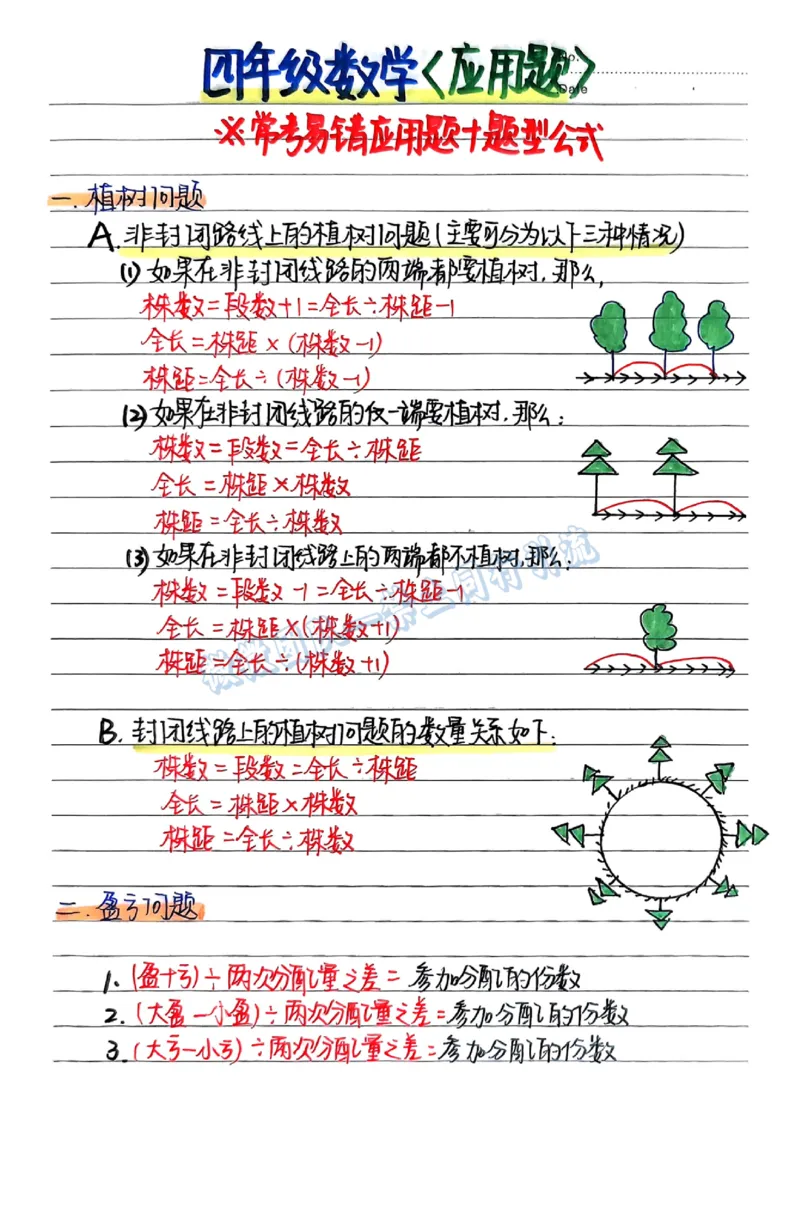 四年级数学〈应用题〉
No.
Date
※常考易错应用题十题型公式
一.植树问题
A.非封闭路线上的植树问题(主要可分为以下三种情况)
(1)如果在非封闭线路的两端都要植树,那么,
株数=段数+1=全长÷株距-1
全长=株距×(株数-1)
株距=全长÷(株数-1)
(2)如果在非封闭线路的仅一端要植树,那么:
株数=段数=全长÷株距
全长=株距×株数
株距=全长÷株数
(3)如果在非封闭线路上的两端都不植树,那么:
株数=段数-1=全长÷株距-1
全长=株距×(株数+1)
株距=全长÷(株数+1)
B.封闭线路上的植树问题的数量关系如下:
株数=段数=全长÷株距
全长=株距×株数
株距=全长÷株数
二.盈亏问题
1.(盈+亏)÷两次分配量之差=参加分配的份数
2.(大盈-小盈)÷两次分配量之差=参加分配的份数
3.(大亏-小亏)÷两次分配量之差=参加分配的份数